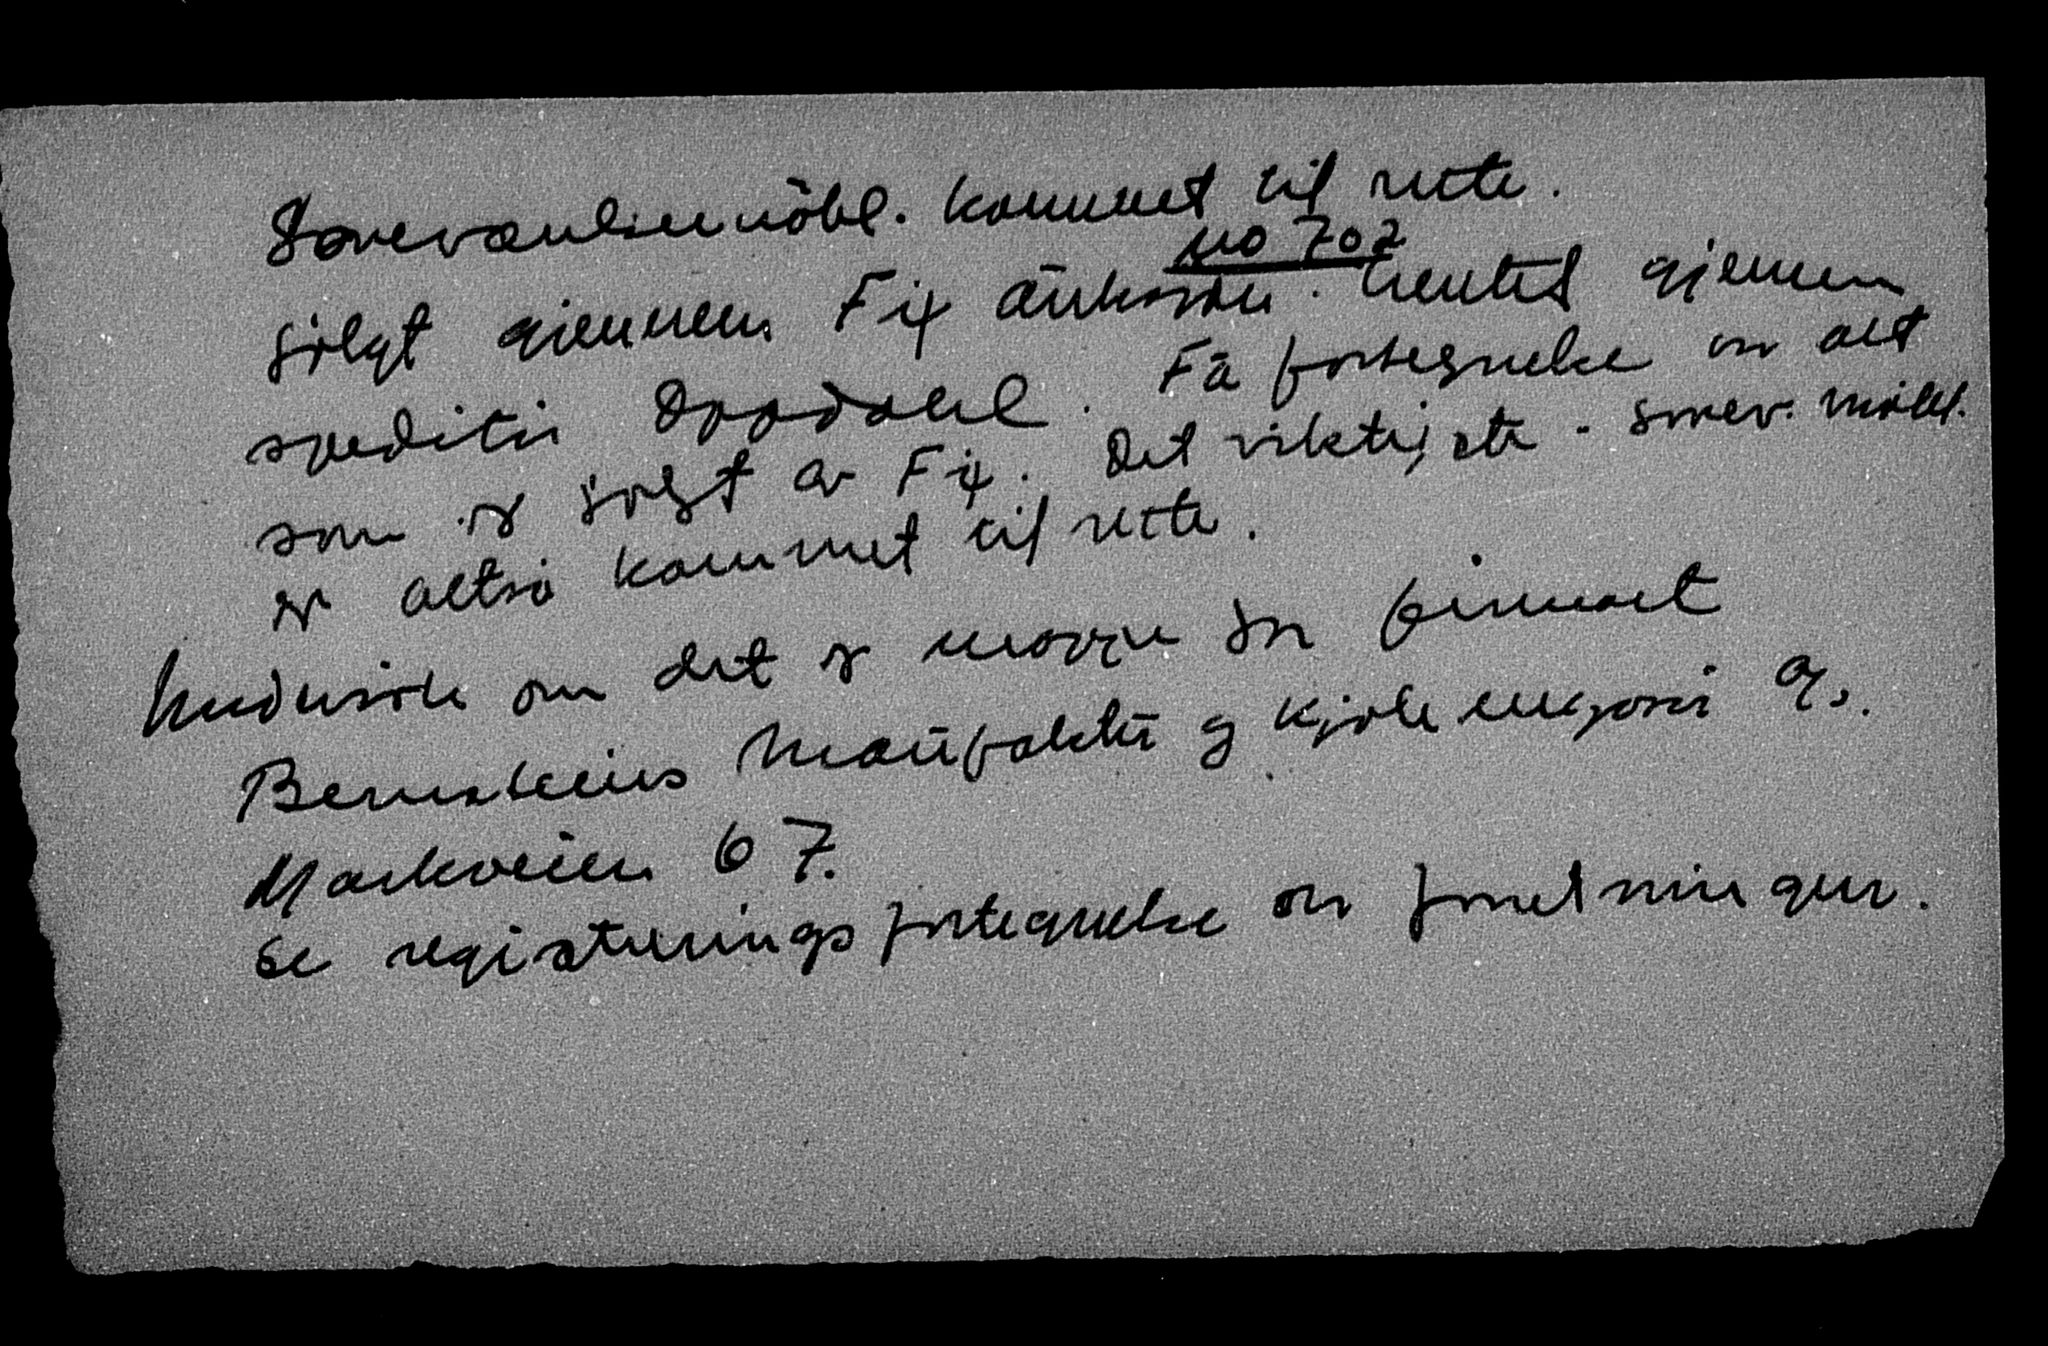 Soveværelsemöbl. kommet til rette.
No 702
solgt gjennem Fix auksjon. hentet gjennem
speditör Oppdahl. Få fortegnelse over alt
som er solgt av Fix. Det viktigste - sovev. möbl.
er altså kommet til rette.
Undersök om det er noe for
Bernsteins Manufaktur og kjole
Markveien 67.
Se registreringsfortegnelse over forretninger.